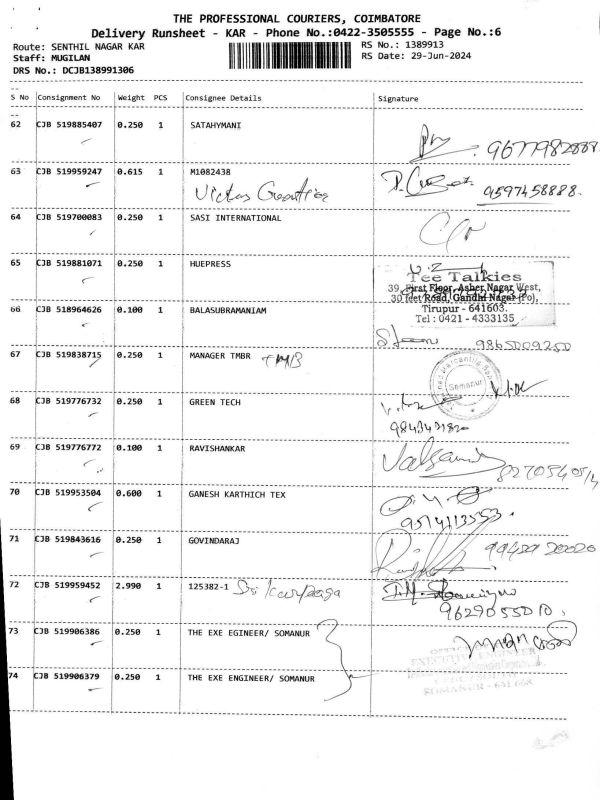 THE PROFESSIONAL COURIERS, COIMBATORE
Delivery Runsheet - KAR - Phone No.:0422-3505555 - Page No.:6
Route: SENTHIL NAGAR KAR RS No.: 1389913
Staff: MUGILAN RS Date: 29-Jun-2024
DRS No.: DCJB138991306
S No Consignment No Weight PCS Consignee Details Signature
62 CJB 519885407 0.250 1 SATAHYMANI
63 CJB 519959247 0.615 1 M1082438
9597458888.
64 CJB 519700083 0.250 1 SASI INTERNATIONAL
65 CJB 519881071 0.250 1 HUEPRESS
Tee Talkies
39, First Floor, Asher Nagar West,
30 feet Road, Gandhi Nagar (Po),
Tirupur - 641603.
Tel : 0421 - 4333135
66 CJB 518964626 0.100 1 BALASUBRAMANIAM
9865009250
67 CJB 519838715 0.250 1 MANAGER TMBR TMB
Somanur
68 CJB 519776732 0.250 1 GREEN TECH
69 CJB 519776772 0.100 1 RAVISHANKAR
70 CJB 519953504 0.600 1 GANESH KARTHICH TEX
71 CJB 519843616 0.250 1 GOVINDARAJ
72 CJB 519959452 2.990 1 125382-1
73 CJB 519906386 0.250 1 THE EXE EGINEER/ SOMANUR
74 CJB 519906379 0.250 1 THE EXE ENGINEER/ SOMANUR